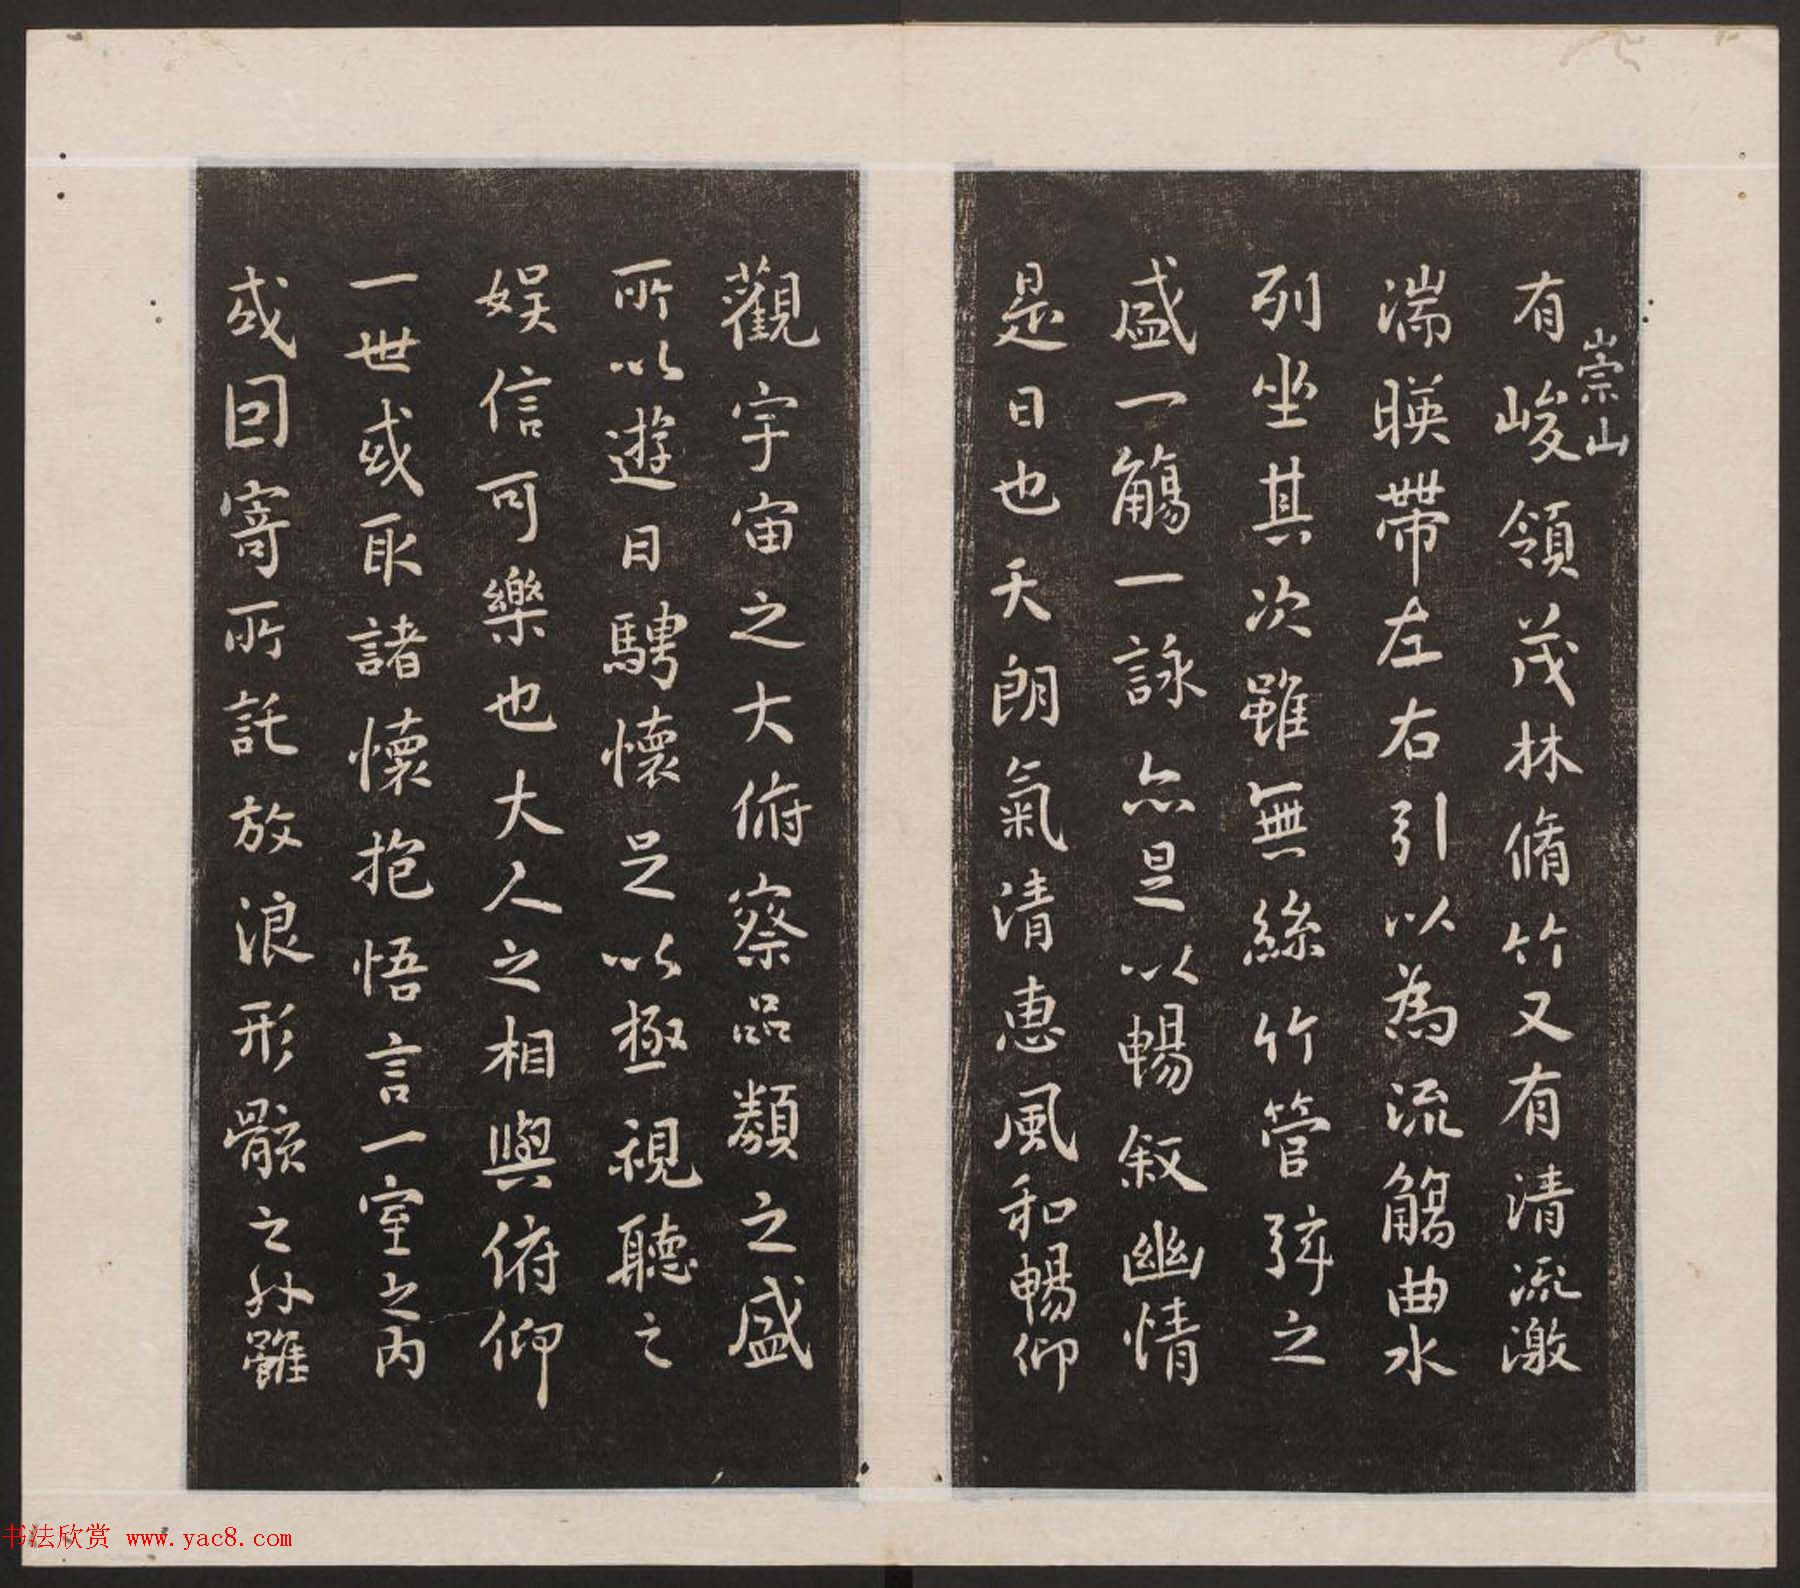 有峻領茂林脩竹又有清流激
崇山
湍暎帶左右引以為流觴曲水
列坐其次雖無絲竹管弦之
盛一觴一詠亦足以暢敘幽情
是日也天朗氣清惠風和暢仰
觀宇宙之大俯察品類之盛
所以遊目騁懷足以極視聽之
娛信可樂也夫人之相與俯仰
一世或取諸懷抱悟言一室之內
或因寄所託放浪形骸之外雖
书法欣赏 www.yac8.com